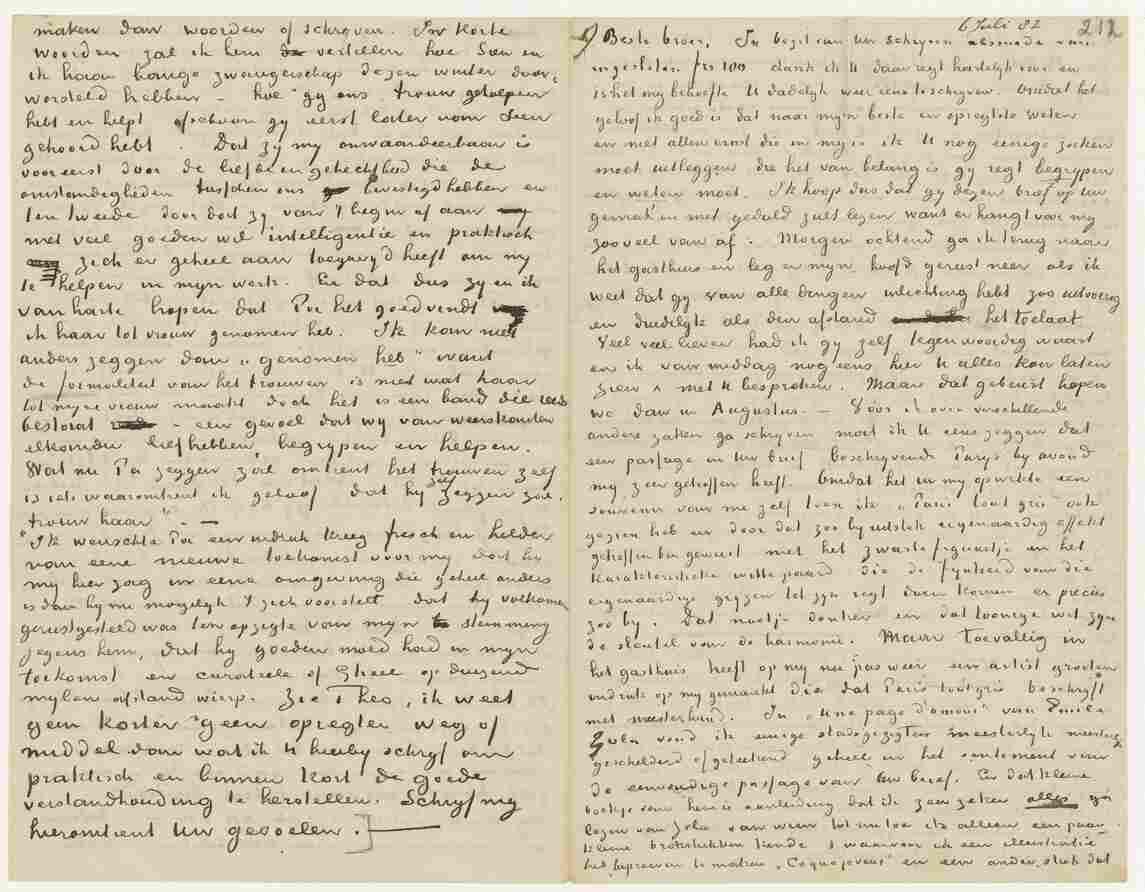 maken dan woorden of schrijven. In korte
woorden zal ik hem vertellen hoe Sien en
ik haar bange zwangerschap dezen winter door-
worsteld hebben – hoe gij ons trouw geholpen
hebt en helpt ofschoon gij eerst later van Sien
gehoord hebt. Dat zij mij onwaardeerbaar is
vooreerst door de liefde en gehechtheid die de
omstandigheden tusschen ons bevestigd hebben en
ten tweede door dat zij van 't begin af aan
met veel goeden wil intelligentie en praktisch
zich er geheel aan toegewijd heeft om mij
te helpen in mijn werk. En dat dus zij en ik
van harte hopen dat Pa het goedvindt
ik haar tot vrouw genomen heb. Ik kan niet
anders zeggen dan „genomen heb" want
de formaliteit van het trouwen is niet wat haar
tot mijne vrouw maakt doch het is een band die reeds
bestaat – een gevoel dat wij van weerskanten
elkander liefhebben, begrijpen en helpen.
Wat nu Pa zeggen zoe omtrent het trouwen zelf
is iets waaromtrent ik geloof dat hij zal zeggen zoe.
trouw haar". –
Ik wenschte Pa een indruk kreeg frisch en helder
van eene nieuwe toekomst voor mij dat hij
mij hier zag in eene omgeving die geheel anders
is dan hij nu mogelijk 't zich voorstelt dat hij volkomen
gerustgesteld was ten opzigte van mijn stemming
jegens hem, dat hij goeden moed had in mijn
toekomst en curateele of Gheel op duizend
mijlen afstand wierp. Zie Theo, ik weet
geen korter geen opregter weg of
middel dan wat ik U hierbij schrijf om
praktisch en binnen kort de goede
verstandhouding te herstellen. Schrijf mij
hieromtrent Uw gevoelen.
6 Juli 82 212
Beste broer, In bezit van Uw schrijven alsmede van
ingesloten frs 100 dank ik U daar regt hartelijk voor en
is het mij behoefte U dadelijk weer eens te schrijven. Omdat het
geloof ik goed is dat naar mijn beste en opregtste weten
en met allen ernst die in mij is ik U nog eenige zaken
moet uitleggen die het van belang is gij regt begrijpen
en weten moet. Ik hoop dus dat gij dezen brief op Uw
gemak en met geduld zult lezen want er hangt voor mij
zooveel van af. Morgen ochtend ga ik terug naar
het gasthuis en leg er mijn hoofd gerust neer als ik
weet dat gij van alle dingen inlichting hebt zoo uitvoerig
en duidelijk als den afstand het toelaat
Veel veel liever had ik gij zelf tegenwoordig waart
en ik van middag nog eens hier U alles kon laten
zien & met U bespreken. Maar dat gebeurt hopen
we dan in Augustus. – Vóór ik over verschillende
andere zaken ga schrijven moet ik U eens zeggen dat
een passage in Uw brief beschrijvende Parijs bij avond
mij zeer getroffen heeft. Omdat het in mij opwekte een
souvenir van me zelf toen ik „Paris tout gris" ook
gezien heb en door dat zoo bij uitstek eigenaardig effekt
getroffen ben geweest met het zwarte figuurtje en het
karakteristieke witte paard die de fijnheid van die
eigenaardige grijzen tot zijn regt doen komen er precies
zoo bij. Dat nootje donker en dat toonige wit zijn
de sleutel van de harmonie. Maar toevallig in
het gasthuis heeft op mij nu pas weer een artist grooten
indruk op mij gemaakt die dat Paris tout gris beschrijft
met meesterhand. In „Une page d'amour" van Emile
Zola vond ik eenige stadsgezigten meesterlijk meesterlijk
geschilderd of geteekend geheel in het sentiment van
de eenvoudige passage van Uw brief. En dat kleine
boekje van hem is aanleiding dat ik zeer zeker alles ga
lezen van Zola van wien tot nu toe ik alleen een paar
kleine brokstukken kende & waarvan ik een illustratie
heb geprobeerd te maken „Ce que je veux" en een ander stuk dat